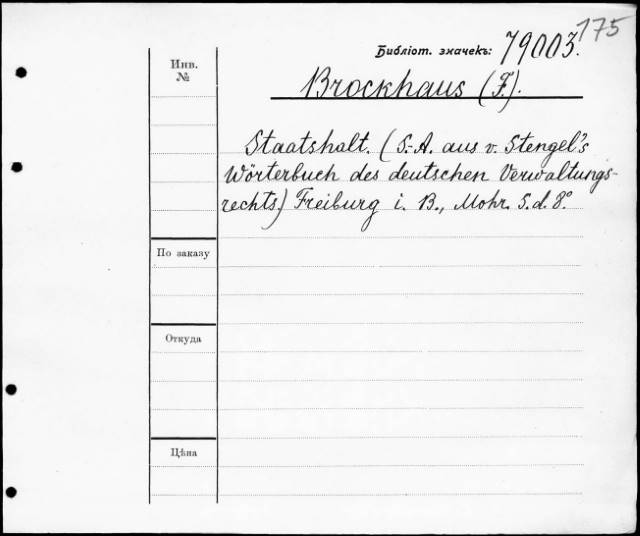 175
Библіот. значекъ: 79003.
Инв.
№
Brockhaus (F.).
Staatshalt. (S.-A. aus v. Stengel's
Wörterbuch des deutschen Verwaltungs-
rechts.) Freiburg i. B., Mohr. S. d. 8°.
По заказу
Откуда
Цѣна